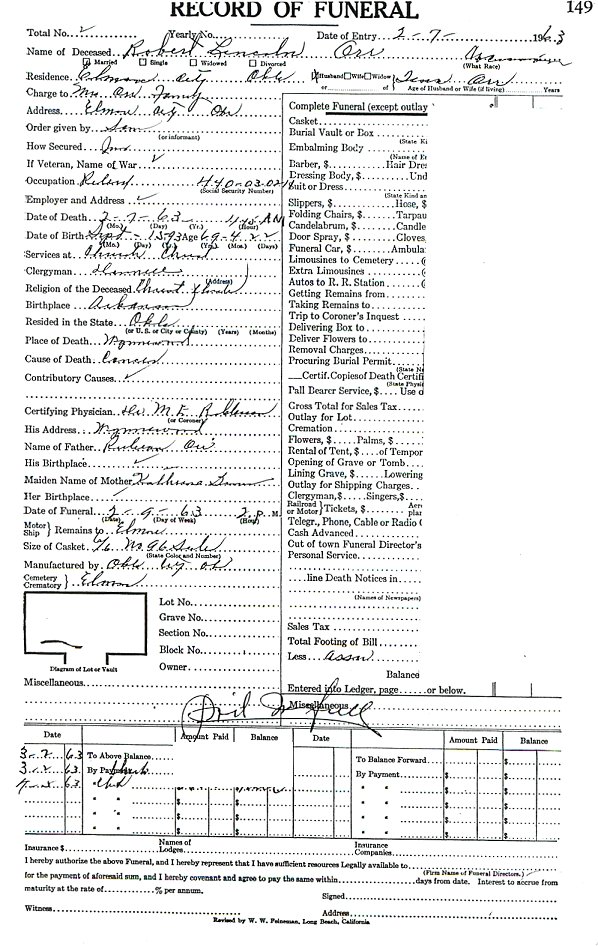 RECORD OF FUNERAL 149
Total No. Yearly No. Date of Entry 2-7- 1963
Name of Deceased Robert Lincoln Orr
(What Race)
Married Single Widowed Divorced
Residence Elmore City Okla Husband Wife Widow Orr
or Age of Husband or Wife (if living) Years
Charge to Mrs Orr Family
Address Elmore City Okla
Order given by
(or informant)
How Secured
If Veteran, Name of War
Occupation Retired 440-03-02
(Social Security Number)
Employer and Address
Date of Death 2-7-63 A M
(Mo.) (Day) (Yr.) (Hour)
Date of Birth Sept - 1893 Age 69-4-22
(Mo.) (Day) (Yr.) (Yrs.) (Mos.) (Days)
Services at Church Christ
Clergyman
(Address)
Religion of the Deceased Christ Church
Birthplace Arkansas
Resided in the State Okla
(or U.S. of City or County) (Years) (Months)
Place of Death Wynnewood
Cause of Death Cancer
Contributory Causes
Certifying Physician M E Robberson
(or Coroner)
His Address Wynnewood
Name of Father Orr
His Birthplace
Maiden Name of Mother
Her Birthplace
Date of Funeral 2-9-63 2 P. M.
(Date) (Day of Week) (Hour)
Motor Ship Remains to Elmore
Size of Casket
(State Color and Number)
Manufactured by Okla
Cemetery Crematory Elmore
Diagram of Lot or Vault
Lot No.
Grave No.
Section No.
Block No.
Owner
Miscellaneous
Complete Funeral (except outlay
Casket
Burial Vault or Box
(State Ki
Embalming Body
(Name of E
Barber, $ Hair Dre
Dressing Body, Und
Suit or Dress
(State Kind a
Slippers, $ Hose, $
Folding Chairs, $ Tarpau
Candelabrum, $ Candle
Door Spray, $ Gloves
Funeral Car, $ Ambula
Limousines to Cemetery
Extra Limousines
Autos to R. R. Station
Getting Remains from
Taking Remains to
Trip to Coroner's Inquest
Delivering Box to
Deliver Flowers to
Removal Charges
Procuring Burial Permit
(State N
Certif. Copies of Death Certifi
(State Physi
Pall Bearer Service, $ Use o
Gross Total for Sales Tax
Outlay for Lot
Cremation
Flowers, $ Palms, $
Rental of Tent, $ of Tempor
Opening of Grave or Tomb
Lining Grave, $ Lowering
Outlay for Shipping Charges
Clergyman, $ Singers, $
Railroad or Motor Tickets, $ Aer plar
Telegr., Phone, Cable or Radio
Cash Advanced
Out of town Funeral Director's
Personal Service
line Death Notices in
(Names of Newspapers)
Sales Tax
Total Footing of Bill
Less Assn
Balance
Entered into Ledger, page or below.
Miscellaneous
Paid In Full
Date Amount Paid Balance Date Amount Paid Balance
63 To Above Balance To Balance Forward $
63 By Payment By Payment $
63 " " " $
" " $ $ " " $
" " $ $ " " $
" " $ $ " " $
Insurance $ Names of Lodges Insurance Companies
I hereby authorize the above Funeral, and I hereby represent that I have sufficient resources Legally available to
(Firm Name of Funeral Directors.)
for the payment of aforesaid sum, and I hereby covenant and agree to pay the same within days from date. Interest to accrue from
maturity at the rate of % per annum. Signed
Witness Address
Revised by W. W. Feineman, Long Beach, California